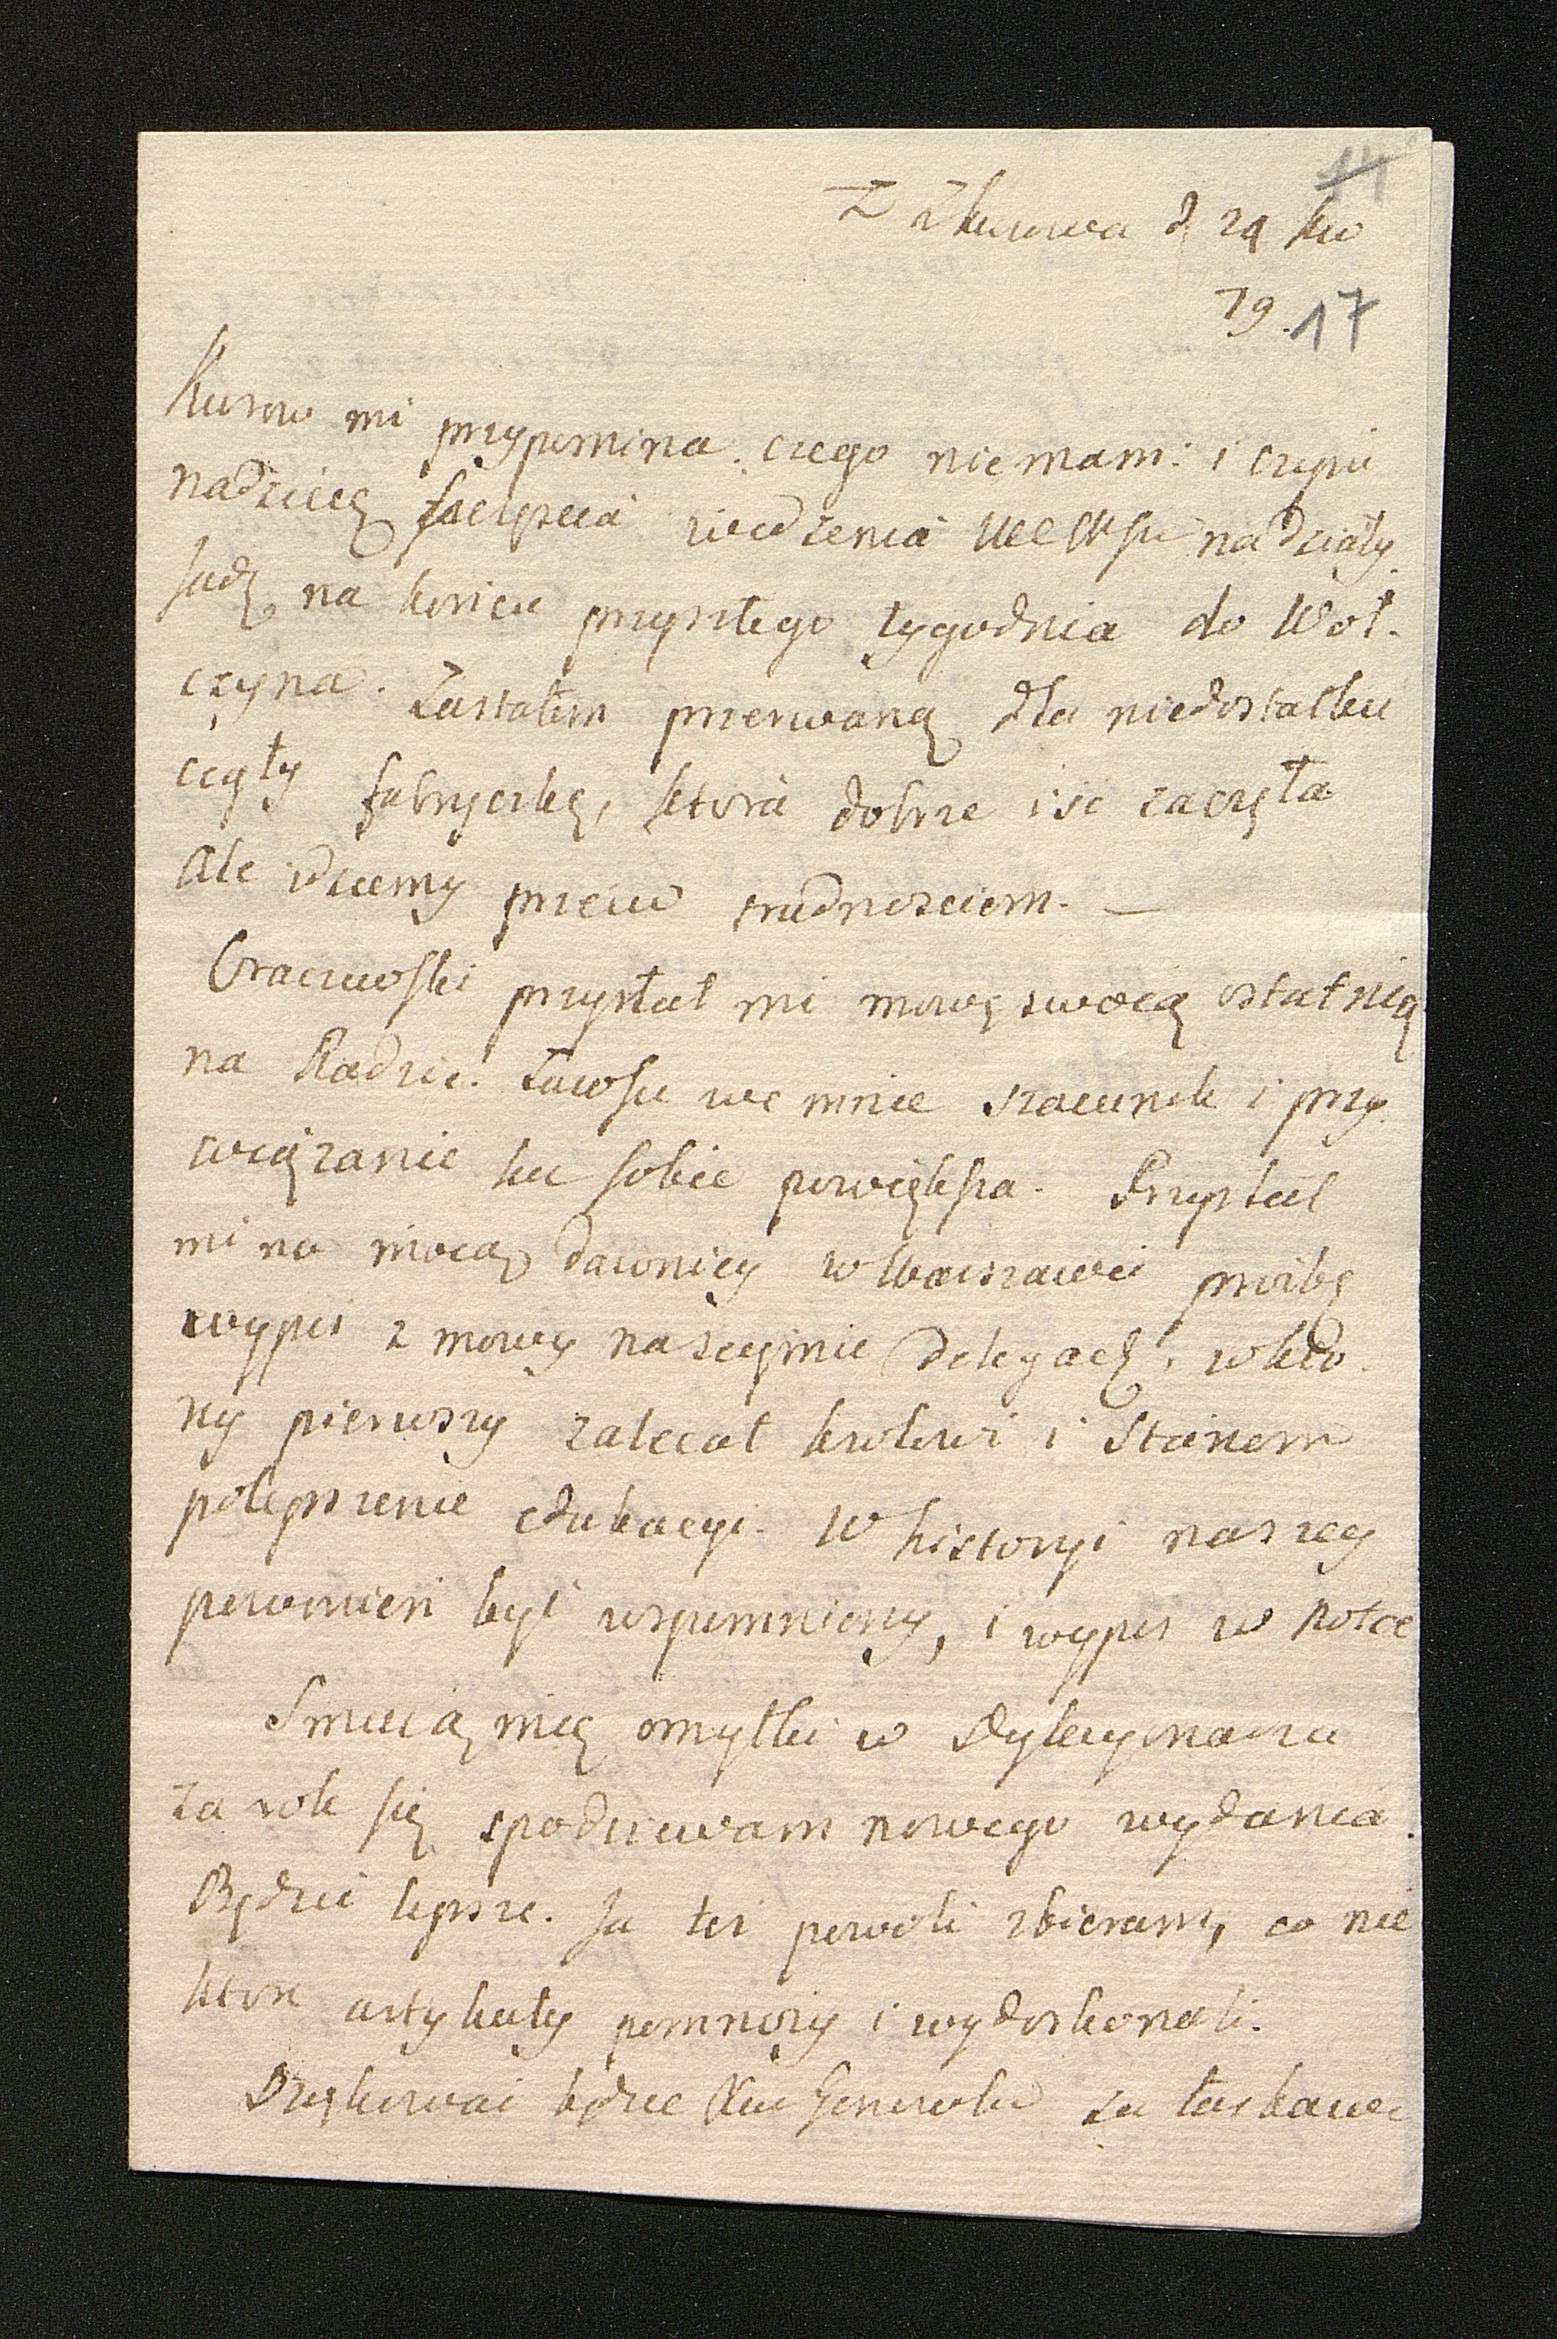 14
Z Kurowa d 29 kw
79. 17
Kurow mi przypomina. czego niemam. i czyni
nadzieię widzenia
Jadę na końcu przyszłego tygodnia do Woł-
czyna. Zastałem przerwaną dla niedostatku
cegły fabryczkę, ktorá dobrze iść zaczęła
Ale idziemy przeciw trudnosciom. —
przysłał mi mowę swoią ostatnią
na Radzie. Zawsze we mnie szacunek i przy-
wiązanie ku sobie powiększa. Przysłał
mi na moią dawniey w Warszawie proźbę
wypis z mowy na seymie delegac. w kto-
ry pierwszy zalecał krolowi i Stanom
polepszenie edukacyi. W historyi naszey
powinien być wspomniony, i wypis w nocie
Smucią mię omyłki w Dykcyonarzu
za rok się spodziewam nowego wydania.
Będzie lepsze. Ja też powoli zbieram, co nie
ktore artykuły pomnoży i wydoskonali.
Dziękować będzie Xiu Generałowi za łaskawe